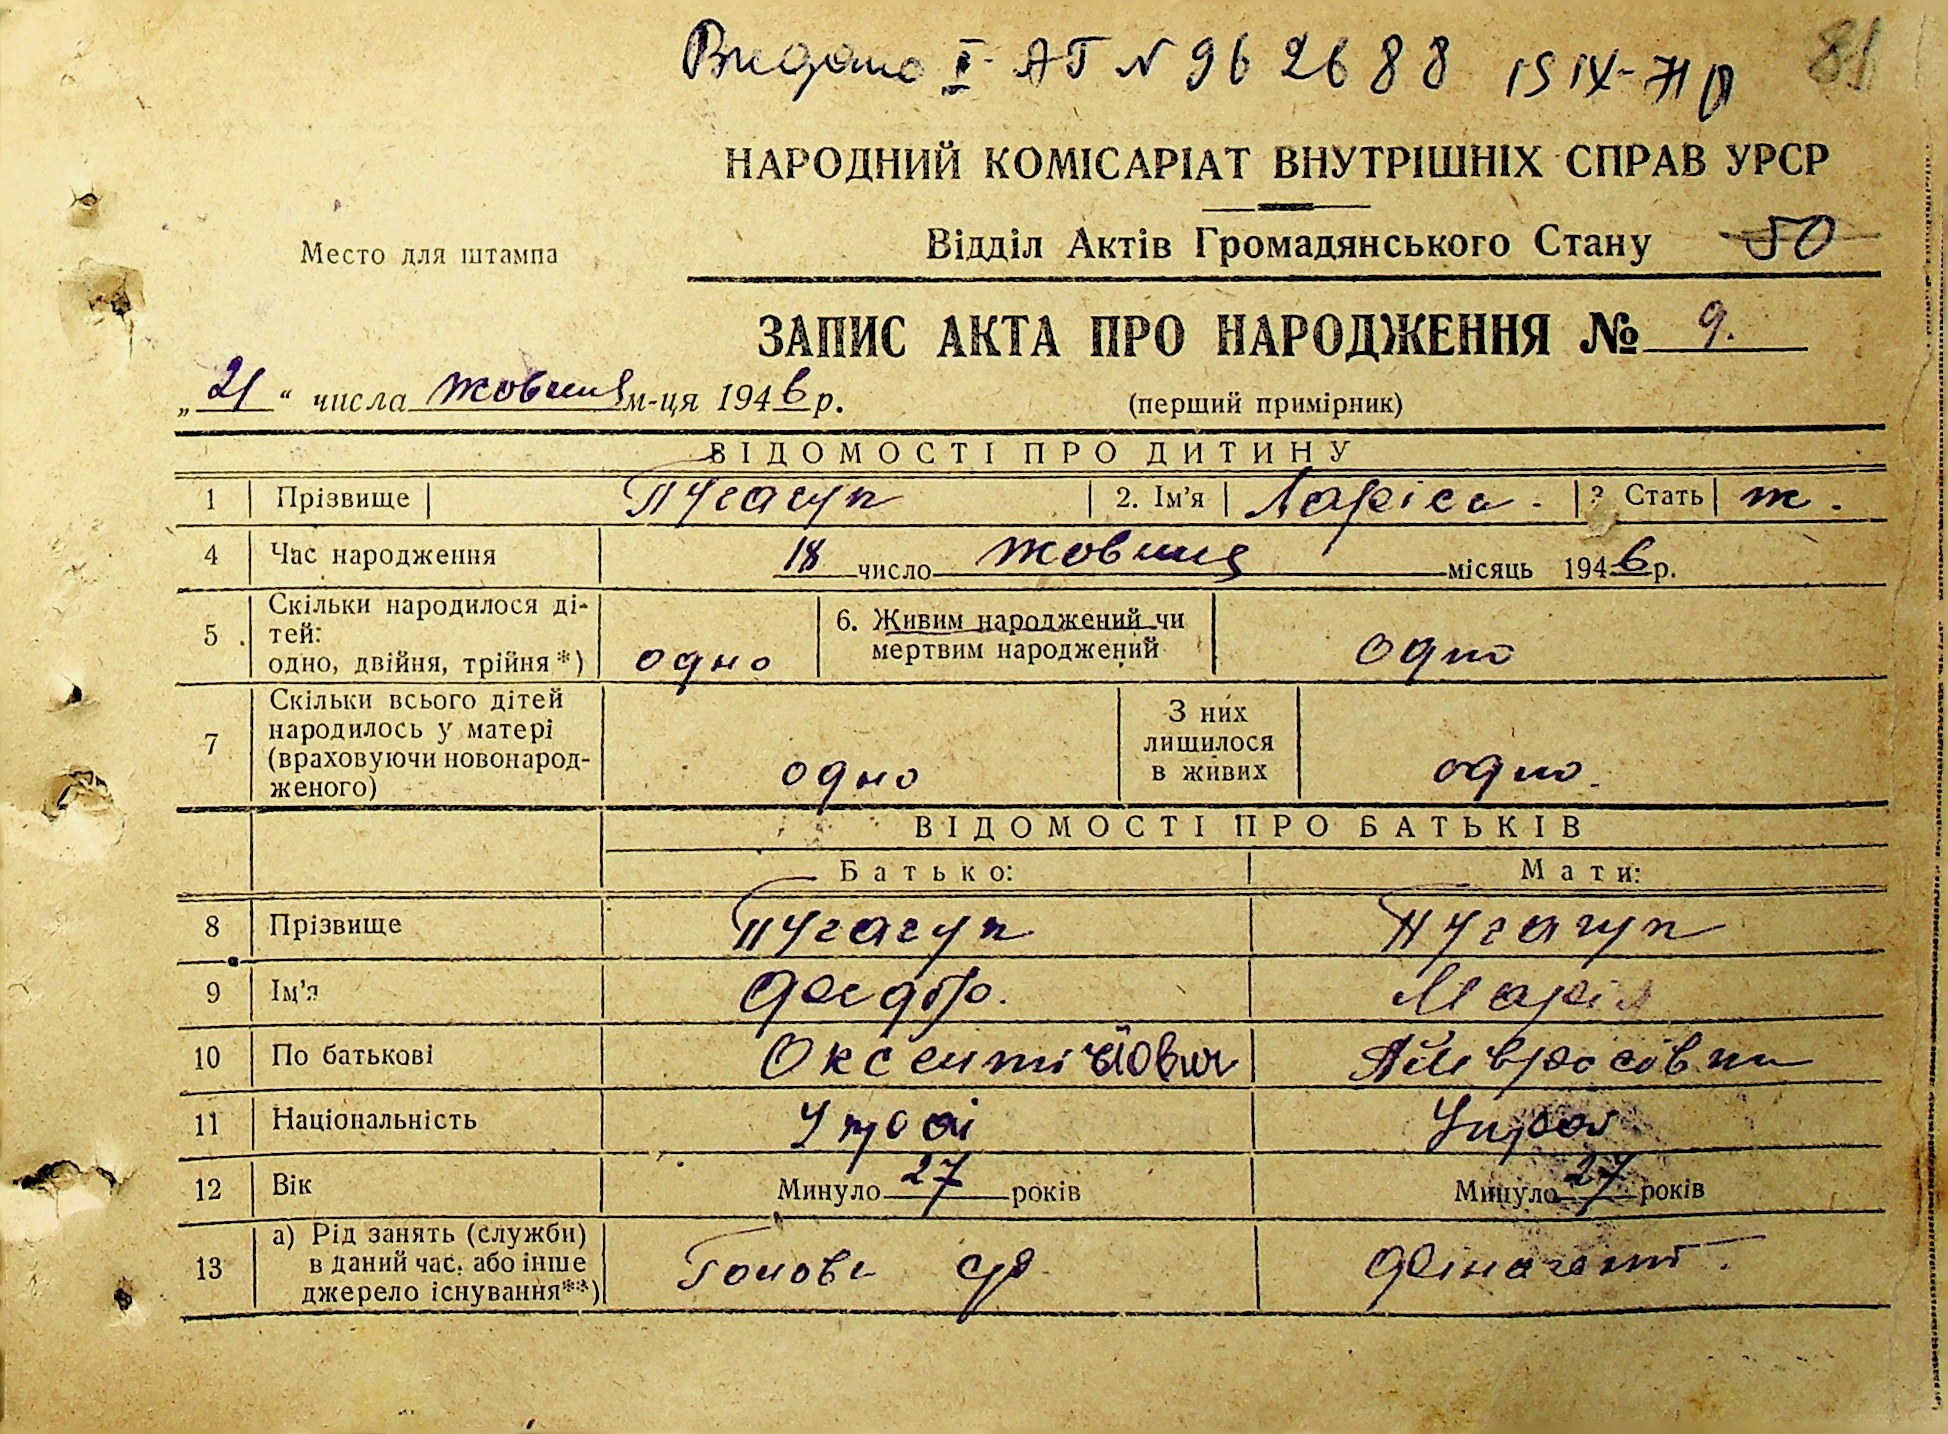 Видано І-АГ N 962688 15 IX-71 р 81
НАРОДНИЙ КОМІСАРІАТ ВНУТРІШНІХ СПРАВ УРСР
Место для штампа
Відділ Актів Громадянського Стану 50
ЗАПИС АКТА ПРО НАРОДЖЕННЯ № 9.
„21“ числа жовтня м-ця 1946 р. (перший примірник)
ВІДОМОСТІ ПРО ДИТИНУ
1 Прізвище 2. Ім'я Ларіса. 3 Стать ж.
4 Час народження 18 число жовтня місяць 1946 р.
5 Скільки народилося ді-
тей:
одно, двійня, трійня*) одно 6. Живим народжений чи
мертвим народжений одно
7 Скільки всього дітей
народилось у матері
(враховуючи новонарод-
женого) одно З них
лишилося
в живих одно.
ВІДОМОСТІ ПРО БАТЬКІВ
Батько: Мати:
8 Прізвище
9 Ім'я Марія
10 По батькові
11 Національність
12 Вік Минуло 27 років Минуло 27 років
13 а) Рід занять (служби)
в даний час, або інше
джерело існування**) Голова с/р Фінагент.